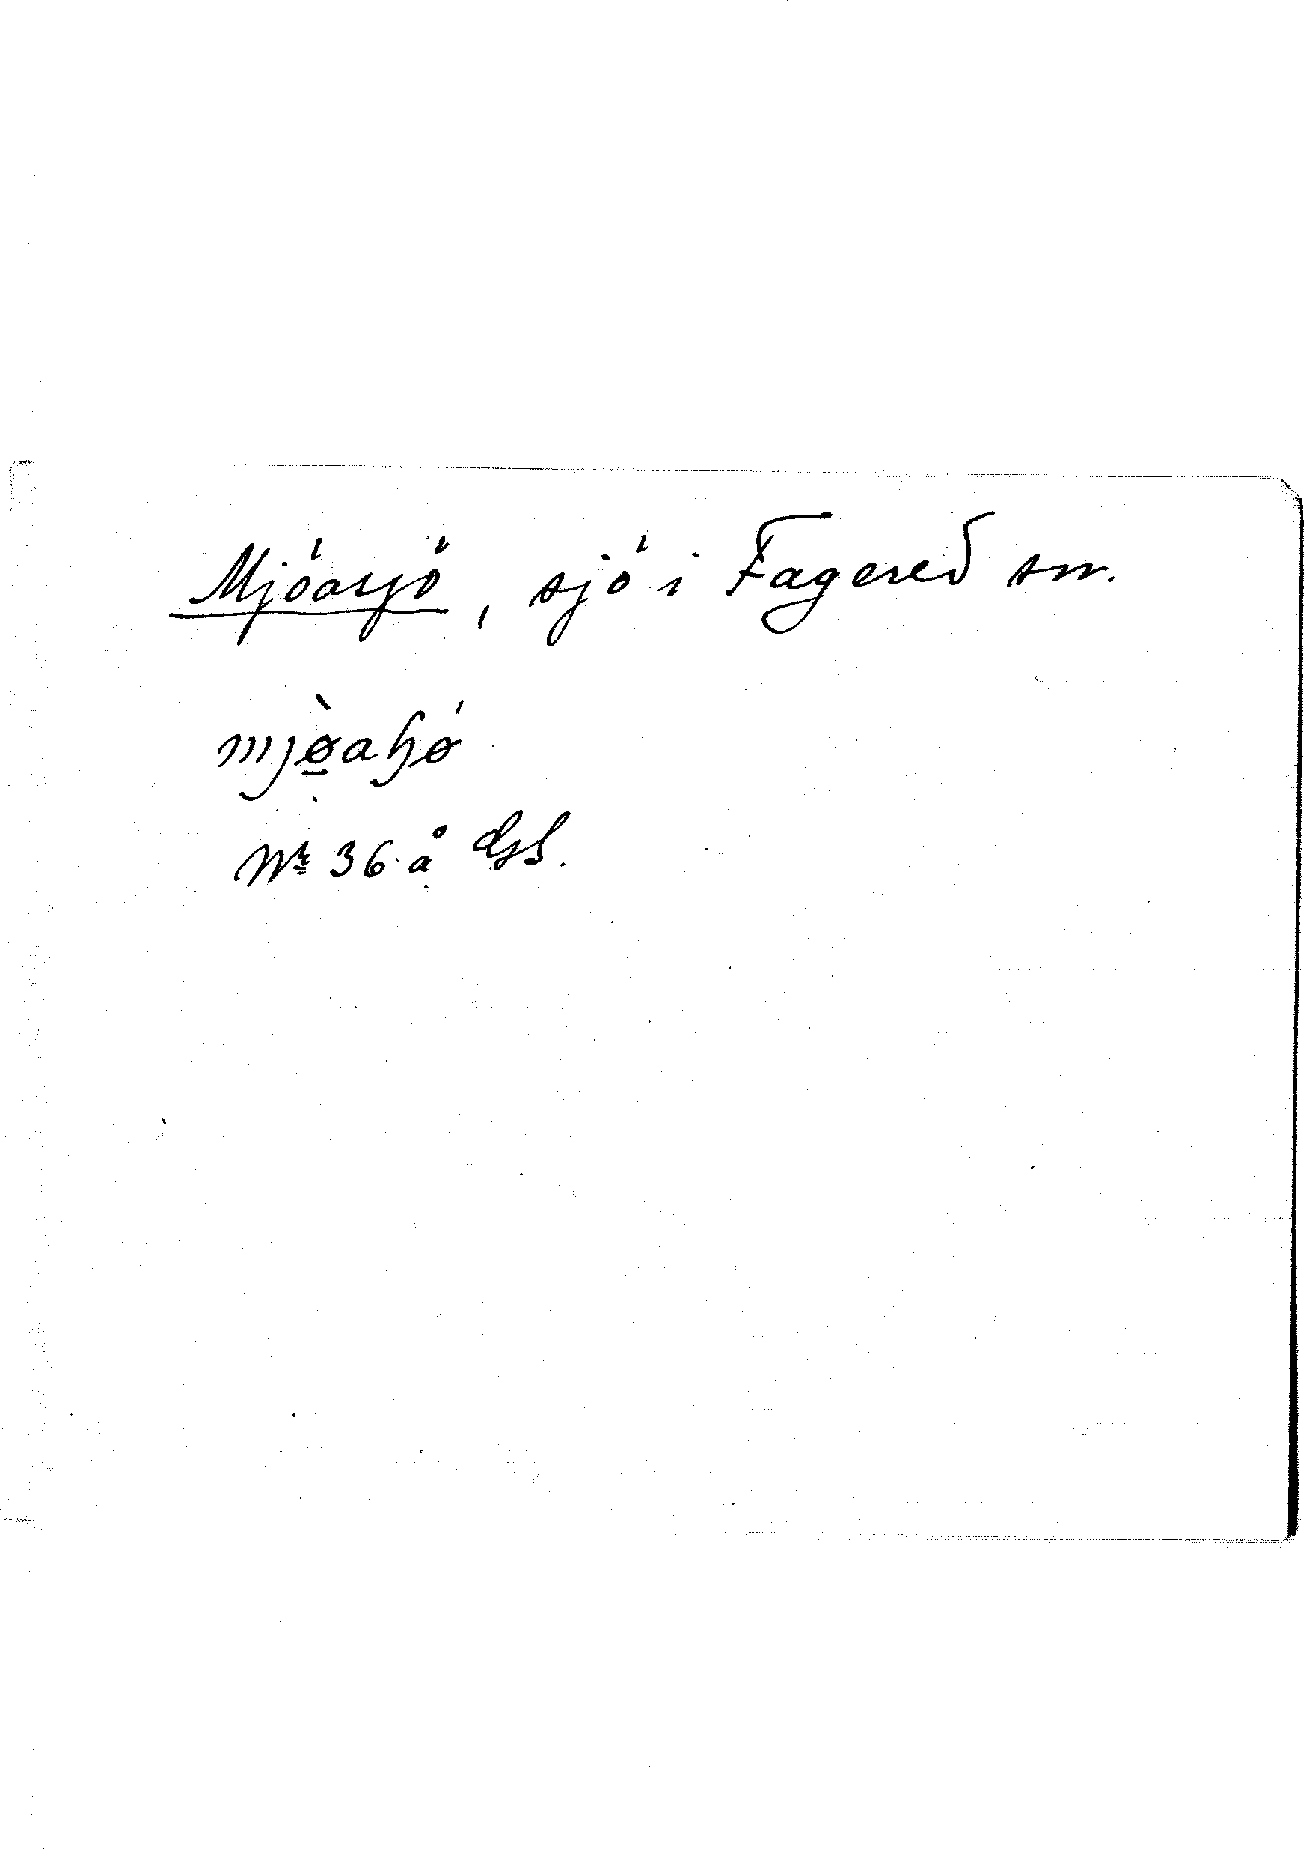 Mjöasjö, sjö i Fagered sn.
mjø̲̀aɧø´
Nr 36 å Gsk.